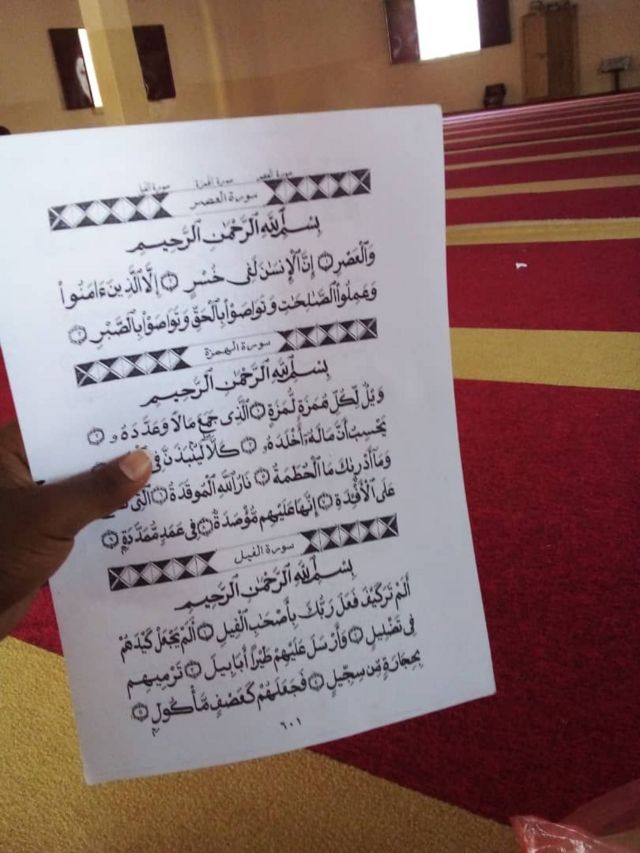 سورة العصر سورة الهمزة سورة الفيل
سورة العصر
بِسْمِ ٱللَّهِ ٱلرَّحْمَٰنِ ٱلرَّحِيمِ
وَٱلْعَصْرِ ١ إِنَّ ٱلْإِنسَٰنَ لَفِى خُسْرٍ ٢ إِلَّا ٱلَّذِينَ ءَامَنُوا۟
وَعَمِلُوا۟ ٱلصَّٰلِحَٰتِ وَتَوَاصَوْا۟ بِٱلْحَقِّ وَتَوَاصَوْا۟ بِٱلصَّبْرِ ٣
سورة الهمزة
بِسْمِ ٱللَّهِ ٱلرَّحْمَٰنِ ٱلرَّحِيمِ
وَيْلٌ لِّكُلِّ هُمَزَةٍ لُّمَزَةٍ ١ ٱلَّذِى جَمَعَ مَالًا وَعَدَّدَهُۥ ٢
يَحْسَبُ أَنَّ مَالَهُۥٓ أَخْلَدَهُۥ ٣ كَلَّا لَيُنۢبَذَنَّ فِى
وَمَآ أَدْرَىٰكَ مَا ٱلْحُطَمَةُ ٥ نَارُ ٱللَّهِ ٱلْمُوقَدَةُ ٦ ٱلَّتِى
عَلَى ٱلْأَفْـِٔدَةِ ٧ إِنَّهَا عَلَيْهِم مُّؤْصَدَةٌ ٨ فِى عَمَدٍ مُّمَدَّدَةٍۭ ٩
سورة الفيل
بِسْمِ ٱللَّهِ ٱلرَّحْمَٰنِ ٱلرَّحِيمِ
أَلَمْ تَرَ كَيْفَ فَعَلَ رَبُّكَ بِأَصْحَٰبِ ٱلْفِيلِ ١ أَلَمْ يَجْعَلْ كَيْدَهُمْ
فِى تَضْلِيلٍ ٢ وَأَرْسَلَ عَلَيْهِمْ طَيْرًا أَبَابِيلَ ٣ تَرْمِيهِم
بِحِجَارَةٍ مِّن سِجِّيلٍ ٤ فَجَعَلَهُمْ كَعَصْفٍ مَّأْكُولٍۭ ٥
٦٠١